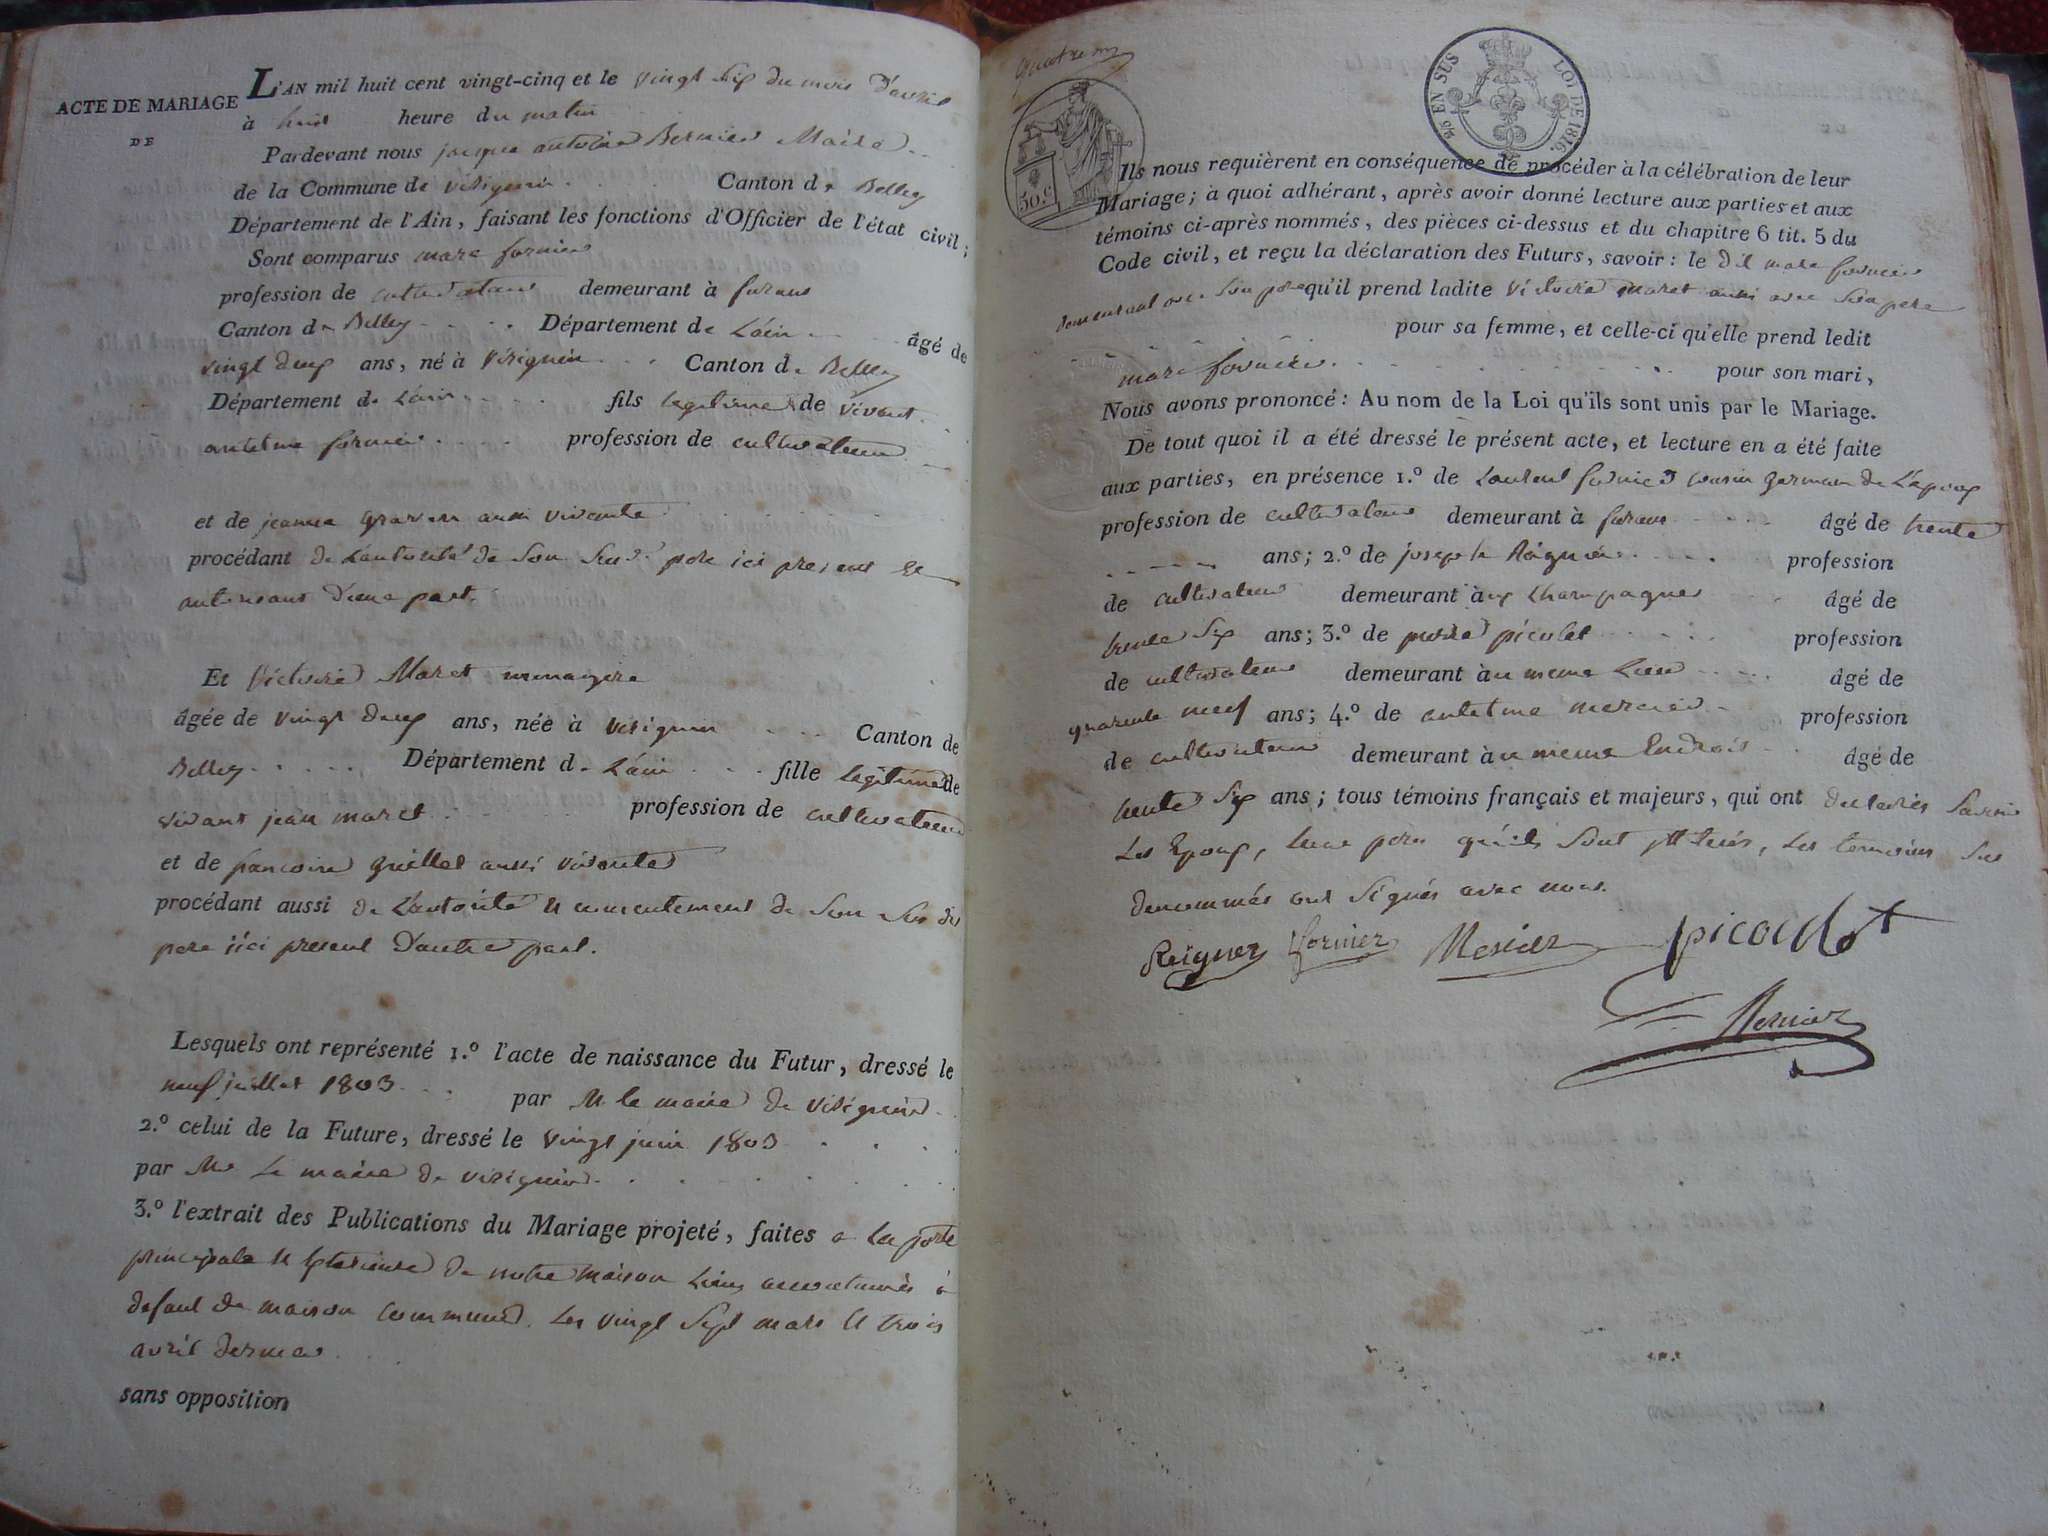 ACTE DE MARIAGE
DE
L'AN mil huit cent vingt-cinq et le vingt six du mois d'avril
à huit heure du matin
Pardevant nous jacque antoine Bernier Maire
de la Commune de virignin Canton de Belley
Département de l'Ain, faisant les fonctions d'Officier de l'état civil;
Sont comparus marc fornier
profession de cultivateur demeurant à furans
Canton de Belley Département de L'ain âgé de
vingt deux ans, né à virignin Canton de Belley
Département de L'ain fils legitime de vivant
antelme fornier profession de cultivateur
et de jeanne aussi vivante
procédant de L'autorité de son sus dit pere ici present et
autorisant D'une part.
Et Victoire Maret menagere
âgée de vingt deux ans, née à virignin Canton de
Belley Département de L'ain fille legitime de
vivant jean maret profession de cultivateur
et de francoise aussi vivante
procédant aussi de L'autorité et consentement de son sus dit
pere ici present D'autre part.
Lesquels ont représenté 1.º l'acte de naissance du Futur, dressé le
neuf juillet 1803 par M. le maire de virignin
2.º celui de la Future, dressé le vingt juin 1803
par Mr Le maire de virignin
3.º l'extrait des Publications du Mariage projeté, faites a La porte
principale et Exterieure de notre maison Lieux accoutumés à
defaut de maison commune. Les vingt sept mars et trois
avril dernier
sans opposition
30.c
EN SUS LOI DE 1816.
Ils nous requièrent en conséquence de procéder à la célébration de leur
Mariage; à quoi adhérant, après avoir donné lecture aux parties et aux
témoins ci-après nommés, des pièces ci-dessus et du chapitre 6 tit. 5 du
Code civil, et reçu la déclaration des Futurs, savoir: le dit marc fornier
demeurant avec son pere qu'il prend ladite victoire maret aussi avec son pere
pour sa femme, et celle-ci qu'elle prend ledit
marc fornier pour son mari,
Nous avons prononcé: Au nom de la Loi qu'ils sont unis par le Mariage.
De tout quoi il a été dressé le présent acte, et lecture en a été faite
aux parties, en présence 1.º de Laurent fornier cousin germain de L'epoux
profession de cultivateur demeurant à furans âgé de trente
ans; 2.º de joseph Reignier profession
de cultivateur demeurant aux Champagnes âgé de
trente six ans; 3.º de pierre picolet profession
de cultivateur demeurant au meme Lieu âgé de
quarante neuf ans; 4.º de antelme mercier profession
de cultivateur demeurant au meme Endroit âgé de
trente six ans; tous témoins français et majeurs, qui ont
Les Epoux, Leurs peres qu'ils sont illiterés, Les temoins sus
denommés ont signés avec nous.
Reigner fornier Mercier picollet
Bernier